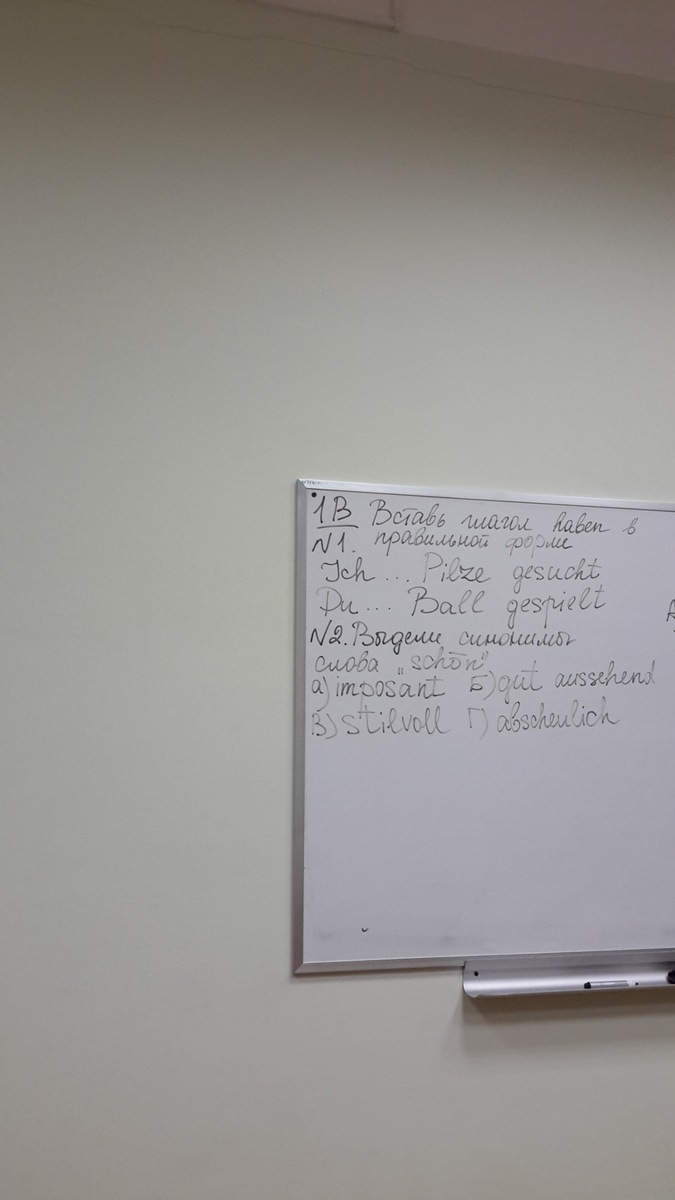 1В Вставь глагол haben в
N1. правильной форме
Ich ... Pilze gesucht
Du ... Ball gespielt
N2. Выдели синонимы
слова „schön"
а) imposant Б) gut aussehend
В) stilvoll Г) abscheulich